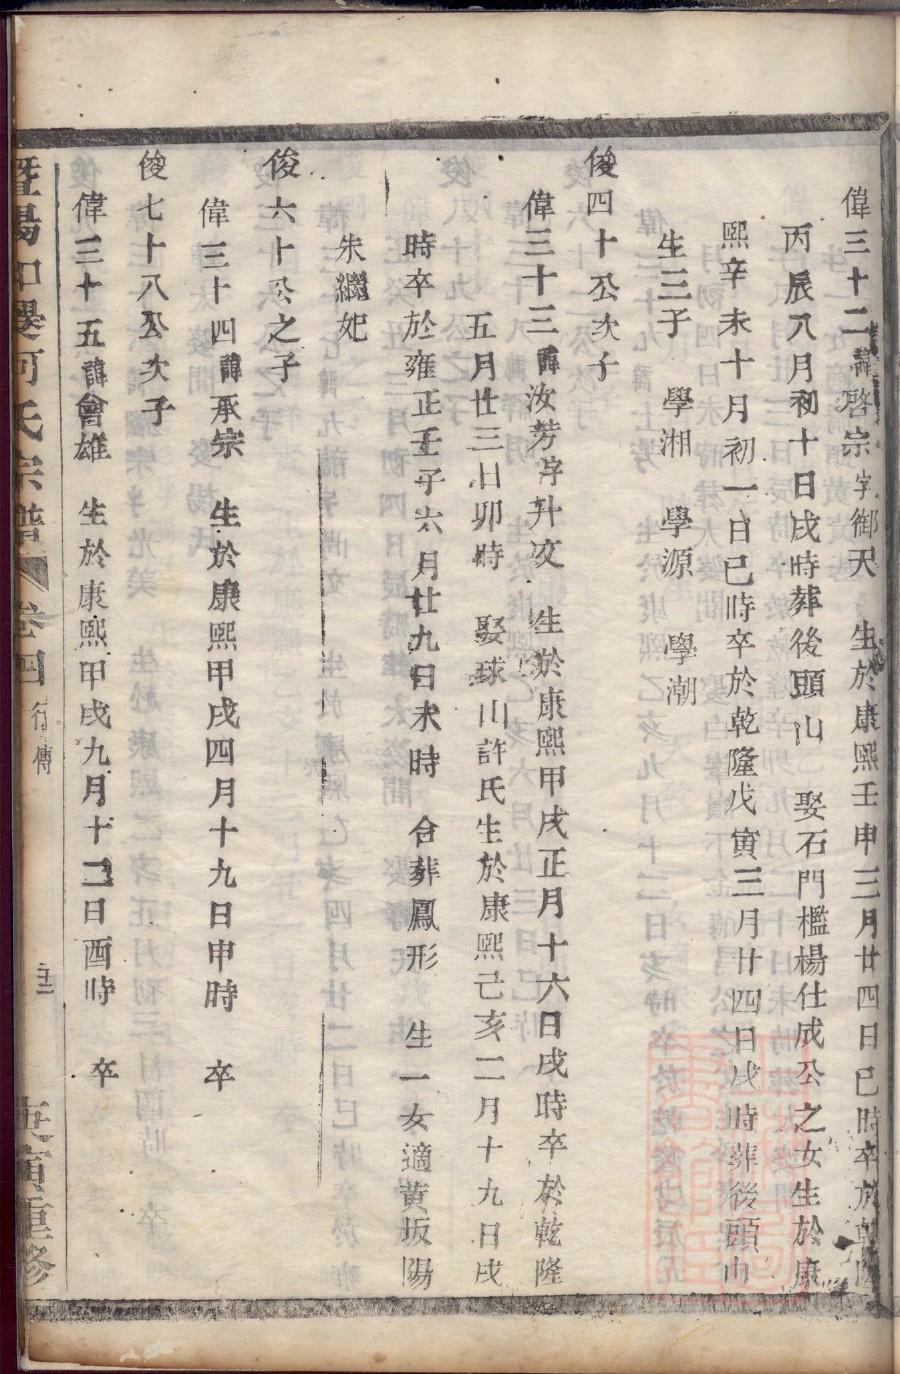 偉三十二諱啓宗字御天　生於康熙壬申三月廿四日巳時卒於乾隆
丙辰八月初十日戌時葬後頭山　娶石門檻楊仕成公之女生於康
熙辛未十月初一日巳時卒於乾隆戊寅三月廿四日戌時葬後頭山
生三子　學湘　學源　學潮
俊四十公次子
偉三十三諱汝芳字升文　生於康熙甲戌正月十六日戌時卒於乾隆
五月廿三日卯時　娶球山許氏生於康熙己亥二月十九日戌
時卒於雍正壬子六月廿九日未時　合葬鳳形　生一女適黄坂陽
朱繼妃
俊六十公之子
偉三十四諱承宗　生於康熙甲戌四月十九日申時　卒
俊七十八公次子
偉三十五諱會雄　生於康熙甲戌九月十二日酉時　卒
暨陽如　何氏宗譜　卷四　行傳　　寅重修